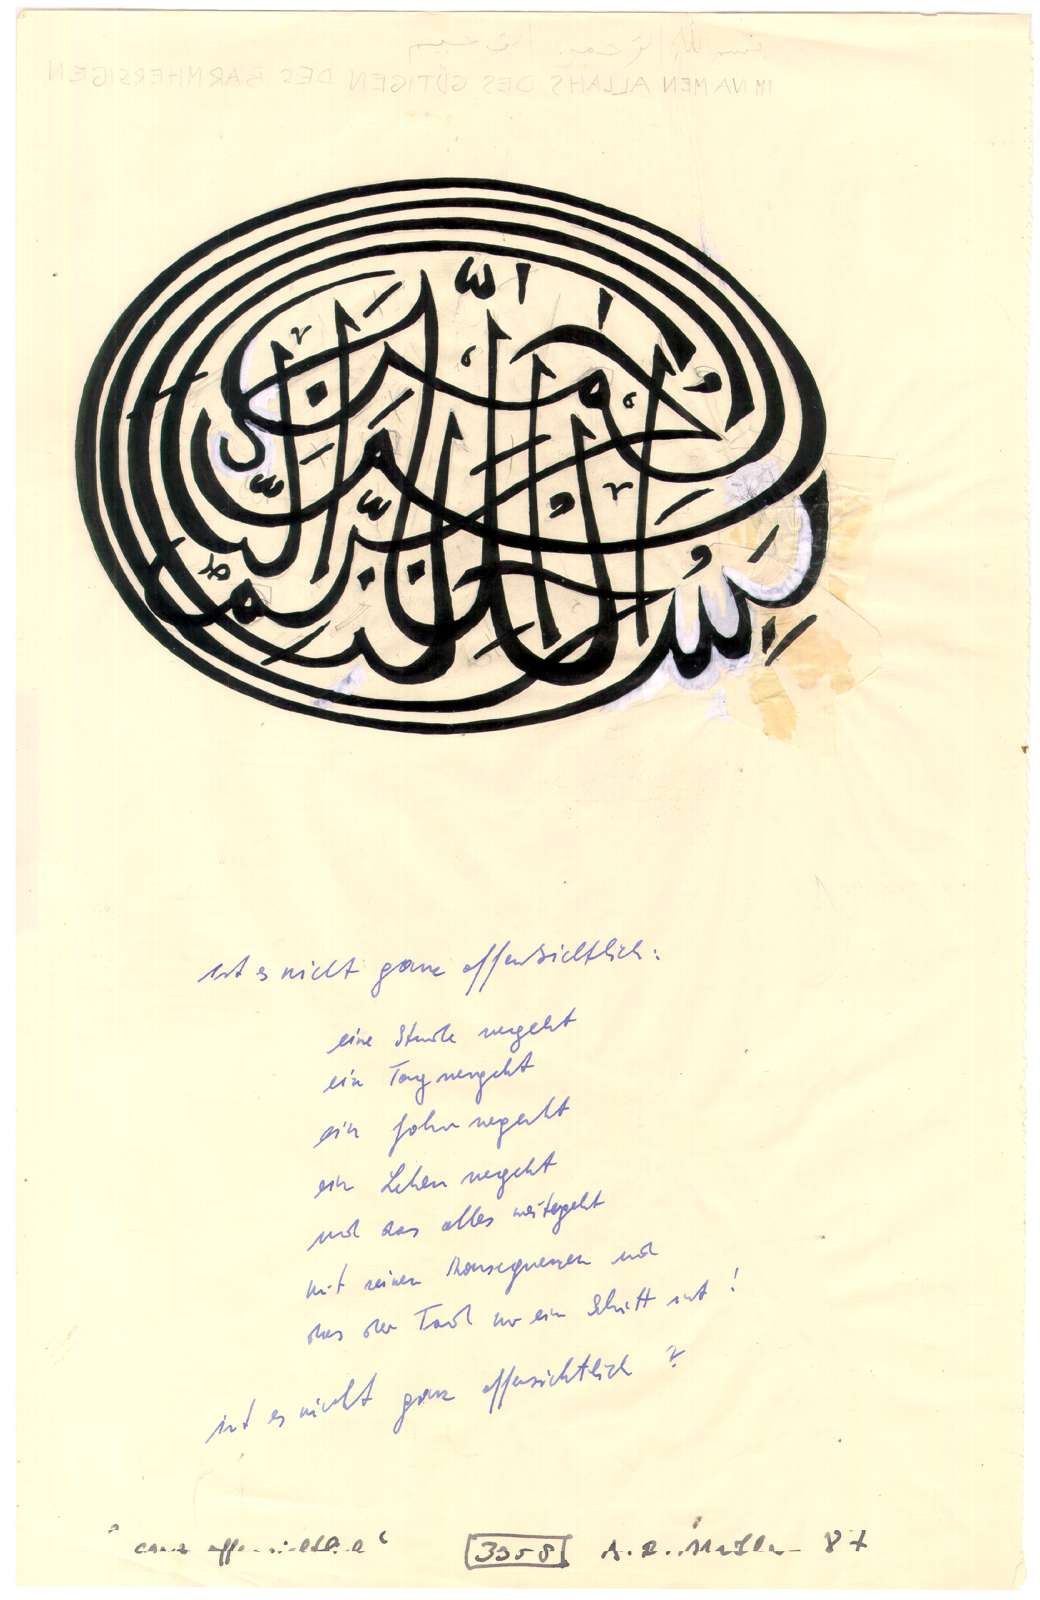 IM NAMEN ALLAHS DES GÜTIGEN DES BARMHERSIGEN
بسم الله الرحمن الرحيم
ist es nicht ganz offensichtlich:
eine Stunde vergeht
ein Tag vergeht
ein Jahr vergeht
ein Leben vergeht
und das alles weitergeht
mit seinen Konsequenzen und
das der Tod nur ein Schritt ist!
ist es nicht ganz offensichtlich?
"ganz offensichtlich"
3358
87